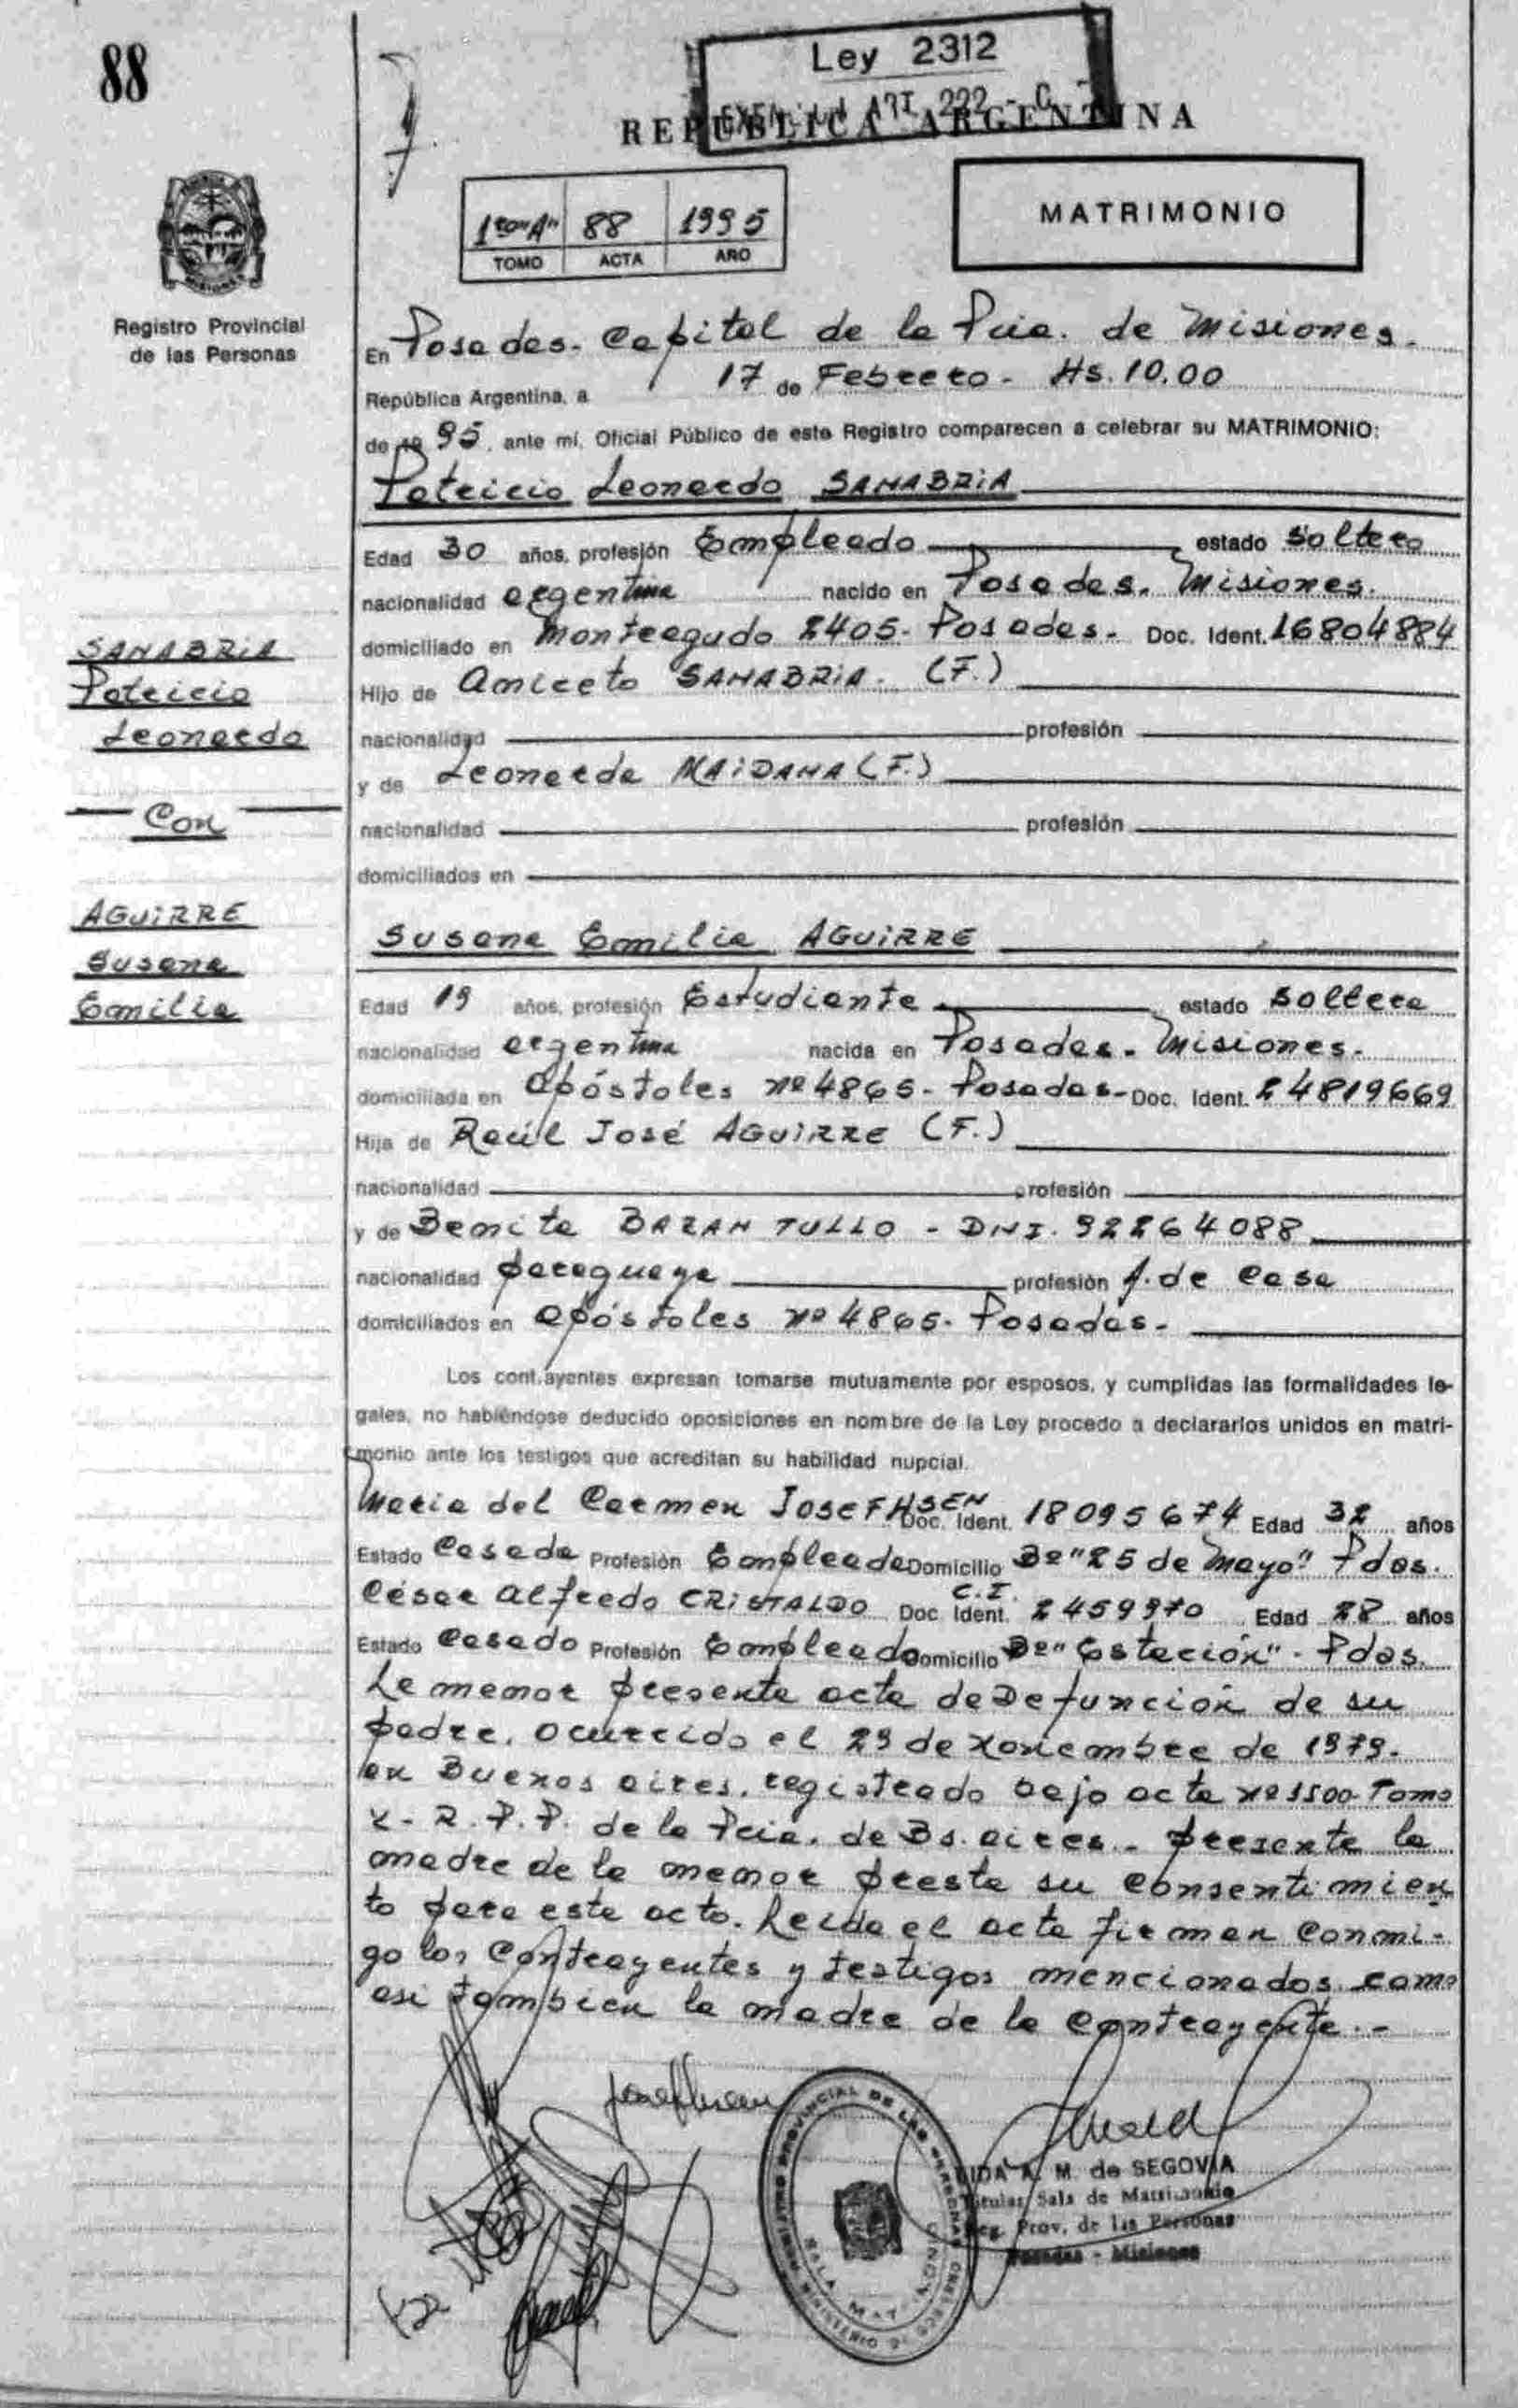 88
Ley 2312
ART 222 - C
REPUBLICA ARGENTINA
1ro "A" 88 1995
TOMO ACTA AÑO
MATRIMONIO
Registro Provincial
de las Personas
En Posadas - Capital de la Pcia. de Misiones.
República Argentina, a 17 de Febrero - Hs. 10.00
de 19 95. ante mí, Oficial Público de este Registro comparecen a celebrar su MATRIMONIO:
Patricio Leonardo SANABRIA
Edad 30 años, profesión Empleado estado soltero
nacionalidad argentina nacido en Posadas. Misiones.
domiciliado en Monteagudo 2405- Posadas- Doc. Ident. 16804884
Hijo de Aniceto SANABRIA. (F.)
nacionalidad profesión
y de Leonarda MAIDANA (F.)
nacionalidad profesión
domiciliados en
SANABRIA
Patricio
Leonardo
Con
AGUIRRE
Susana
Emilia
Susana Emilia AGUIRRE
Edad 19 años, profesión Estudiante estado soltera
nacionalidad argentina nacida en Posadas. Misiones.
domiciliada en Apóstoles nº 4865- Posadas- Doc. Ident. 24819669
Hija de Raúl José AGUIRRE (F.)
nacionalidad profesión
y de Benita BAZAN TULLO - DNI. 92264088
nacionalidad paraguaya profesión A. de Casa
domiciliados en Apóstoles nº 4865- Posadas-
Los contrayentes expresan tomarse mutuamente por esposos, y cumplidas las formalidades le-
gales, no habiéndose deducido oposiciones en nombre de la Ley procedo a declararlos unidos en matri-
monio ante los testigos que acreditan su habilidad nupcial.
Maria del Carmen JOSEFHSEN Doc. Ident. 18095674 Edad 32 años
Estado Casada Profesión Empleada Domicilio Bº "25 de Mayo" Pdas.
César Alfredo CRISTALDO Doc. Ident. C.I. 2459970 Edad 28 años
Estado Casado Profesión Empleado Domicilio Bº "Estación" - Pdas.
La menor presenta acta de Defunción de su
padre, ocurrido el 29 de Noviembre de 1979.
en Buenos Aires, registrado bajo acta nº 1500- Tomo
R.P.P. de la Pcia. de Bs. Aires.- presente la
madre de la menor presta su consentimien
to para este acto. Leída el acta firman conmi-
go los contrayentes y testigos mencionados como
asi tambien la madre de la contrayente.-
REGISTRO PROVINCIAL DE LAS PERSONAS
SALA MATRIMONIO
A. M. de SEGOVIA
Titular Sala de Matrimonio
Reg. Prov. de las Personas
Posadas - Misiones